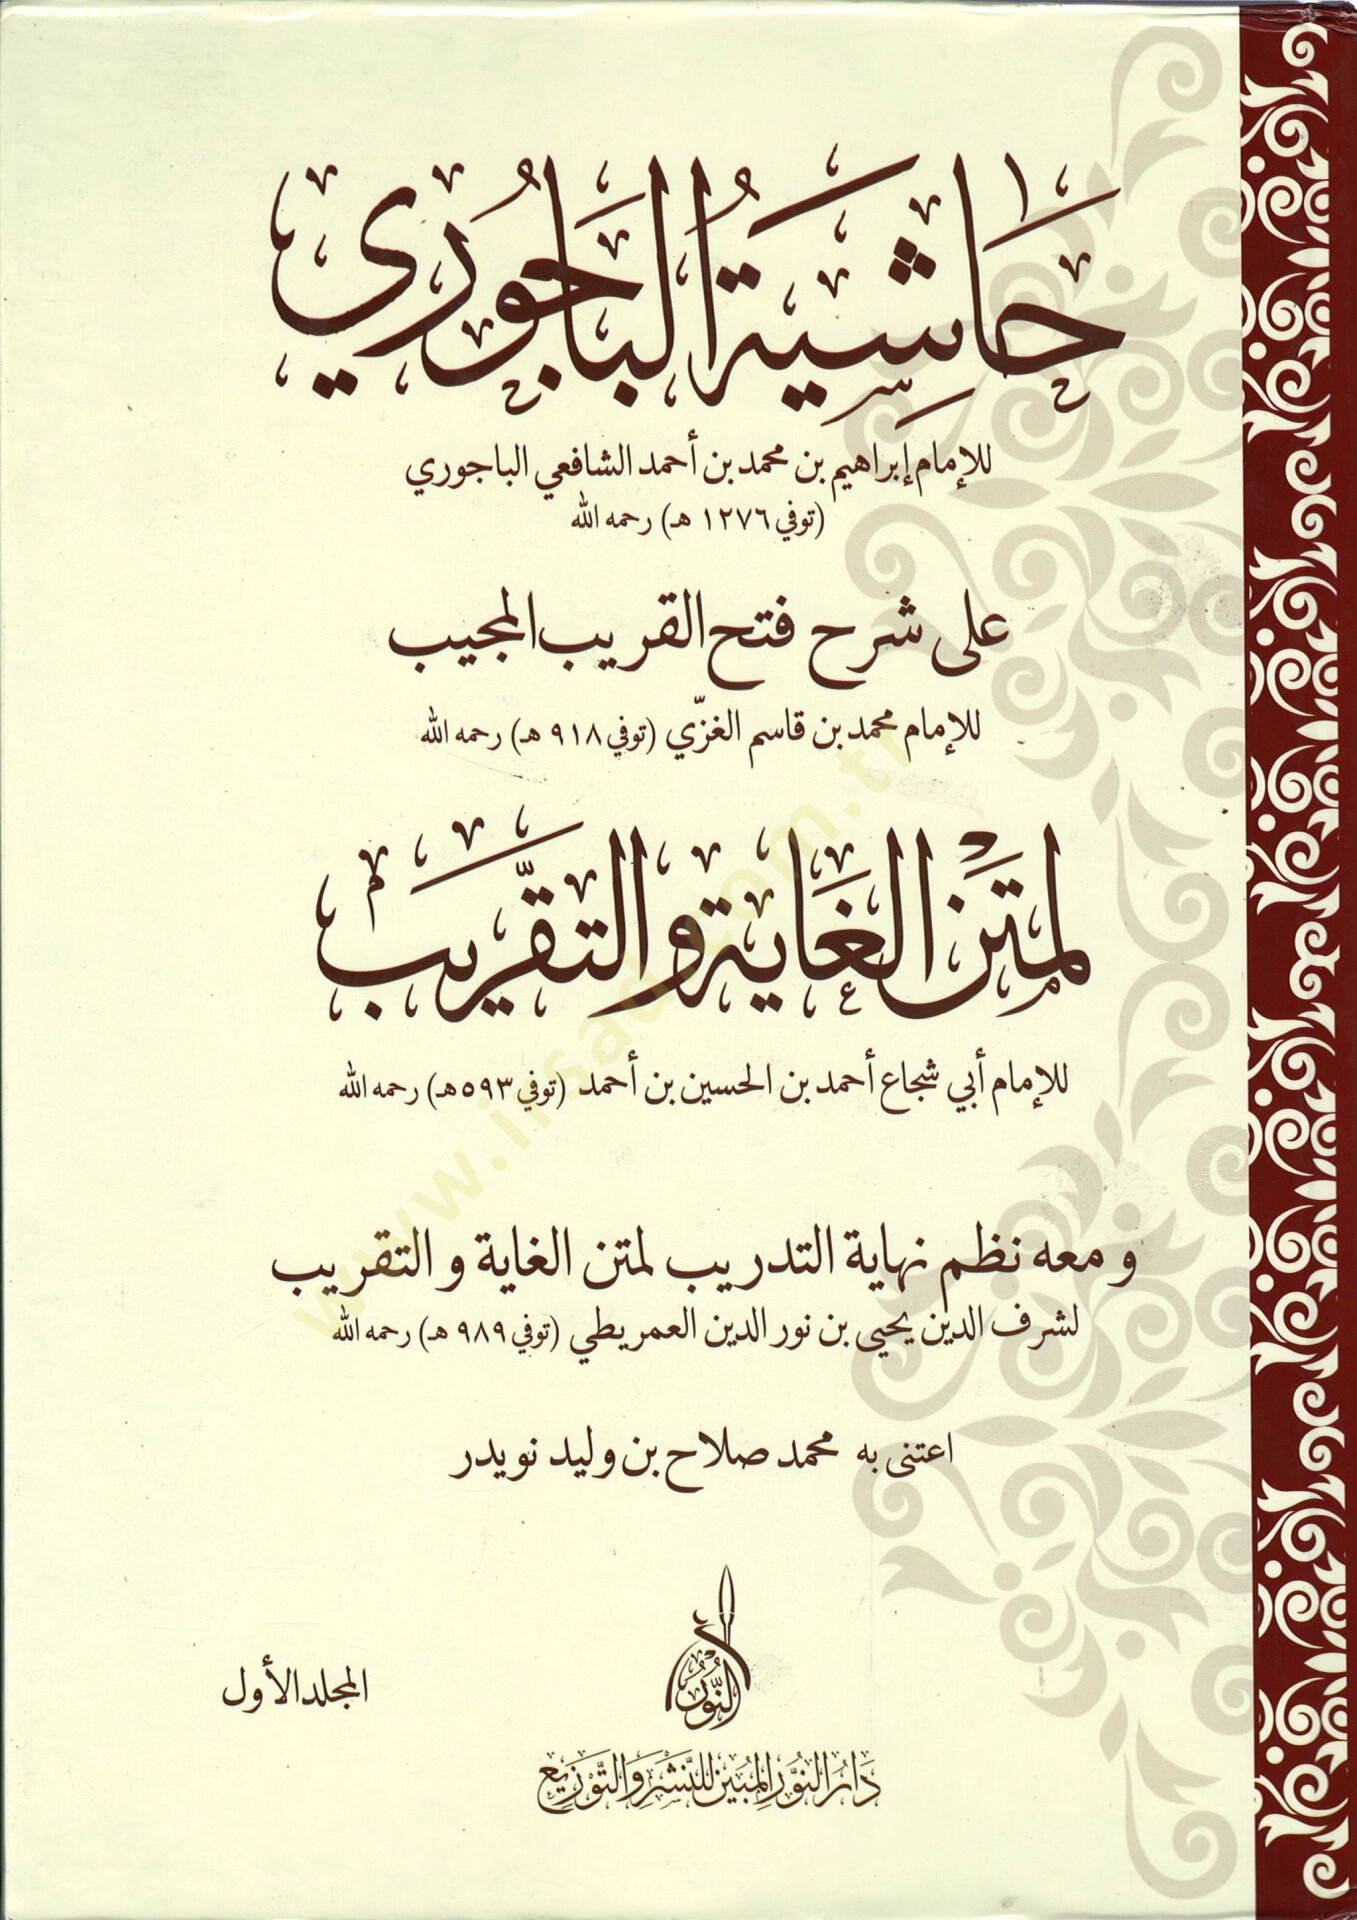 حَاشِيَةُ البَاجُورِي
للإمام إبراهيم بن محمد بن أحمد الشافعي الباجوري
(توفي ١٢٧٦ هـ) رحمه الله
على شرح فتح القريب المجيب
للإمام محمد بن قاسم الغزّي (توفي ٩١٨ هـ) رحمه الله
لمتن الغاية والتقريب
للإمام أبي شجاع أحمد بن الحسين بن أحمد (توفي ٥٩٣هـ) رحمه الله
و معه نظم نهاية التدريب لمتن الغاية و التقريب
لشرف الدين يحيى بن نور الدين العمريطي (توفي ٩٨٩ هـ) رحمه الله
اعتنى به محمد صلاح بن وليد نويدر
النُّور
المجلد الأول
دَارُ النُّورِ المُبِين لِلنَّشْرِ وَالتَّوْزِيع